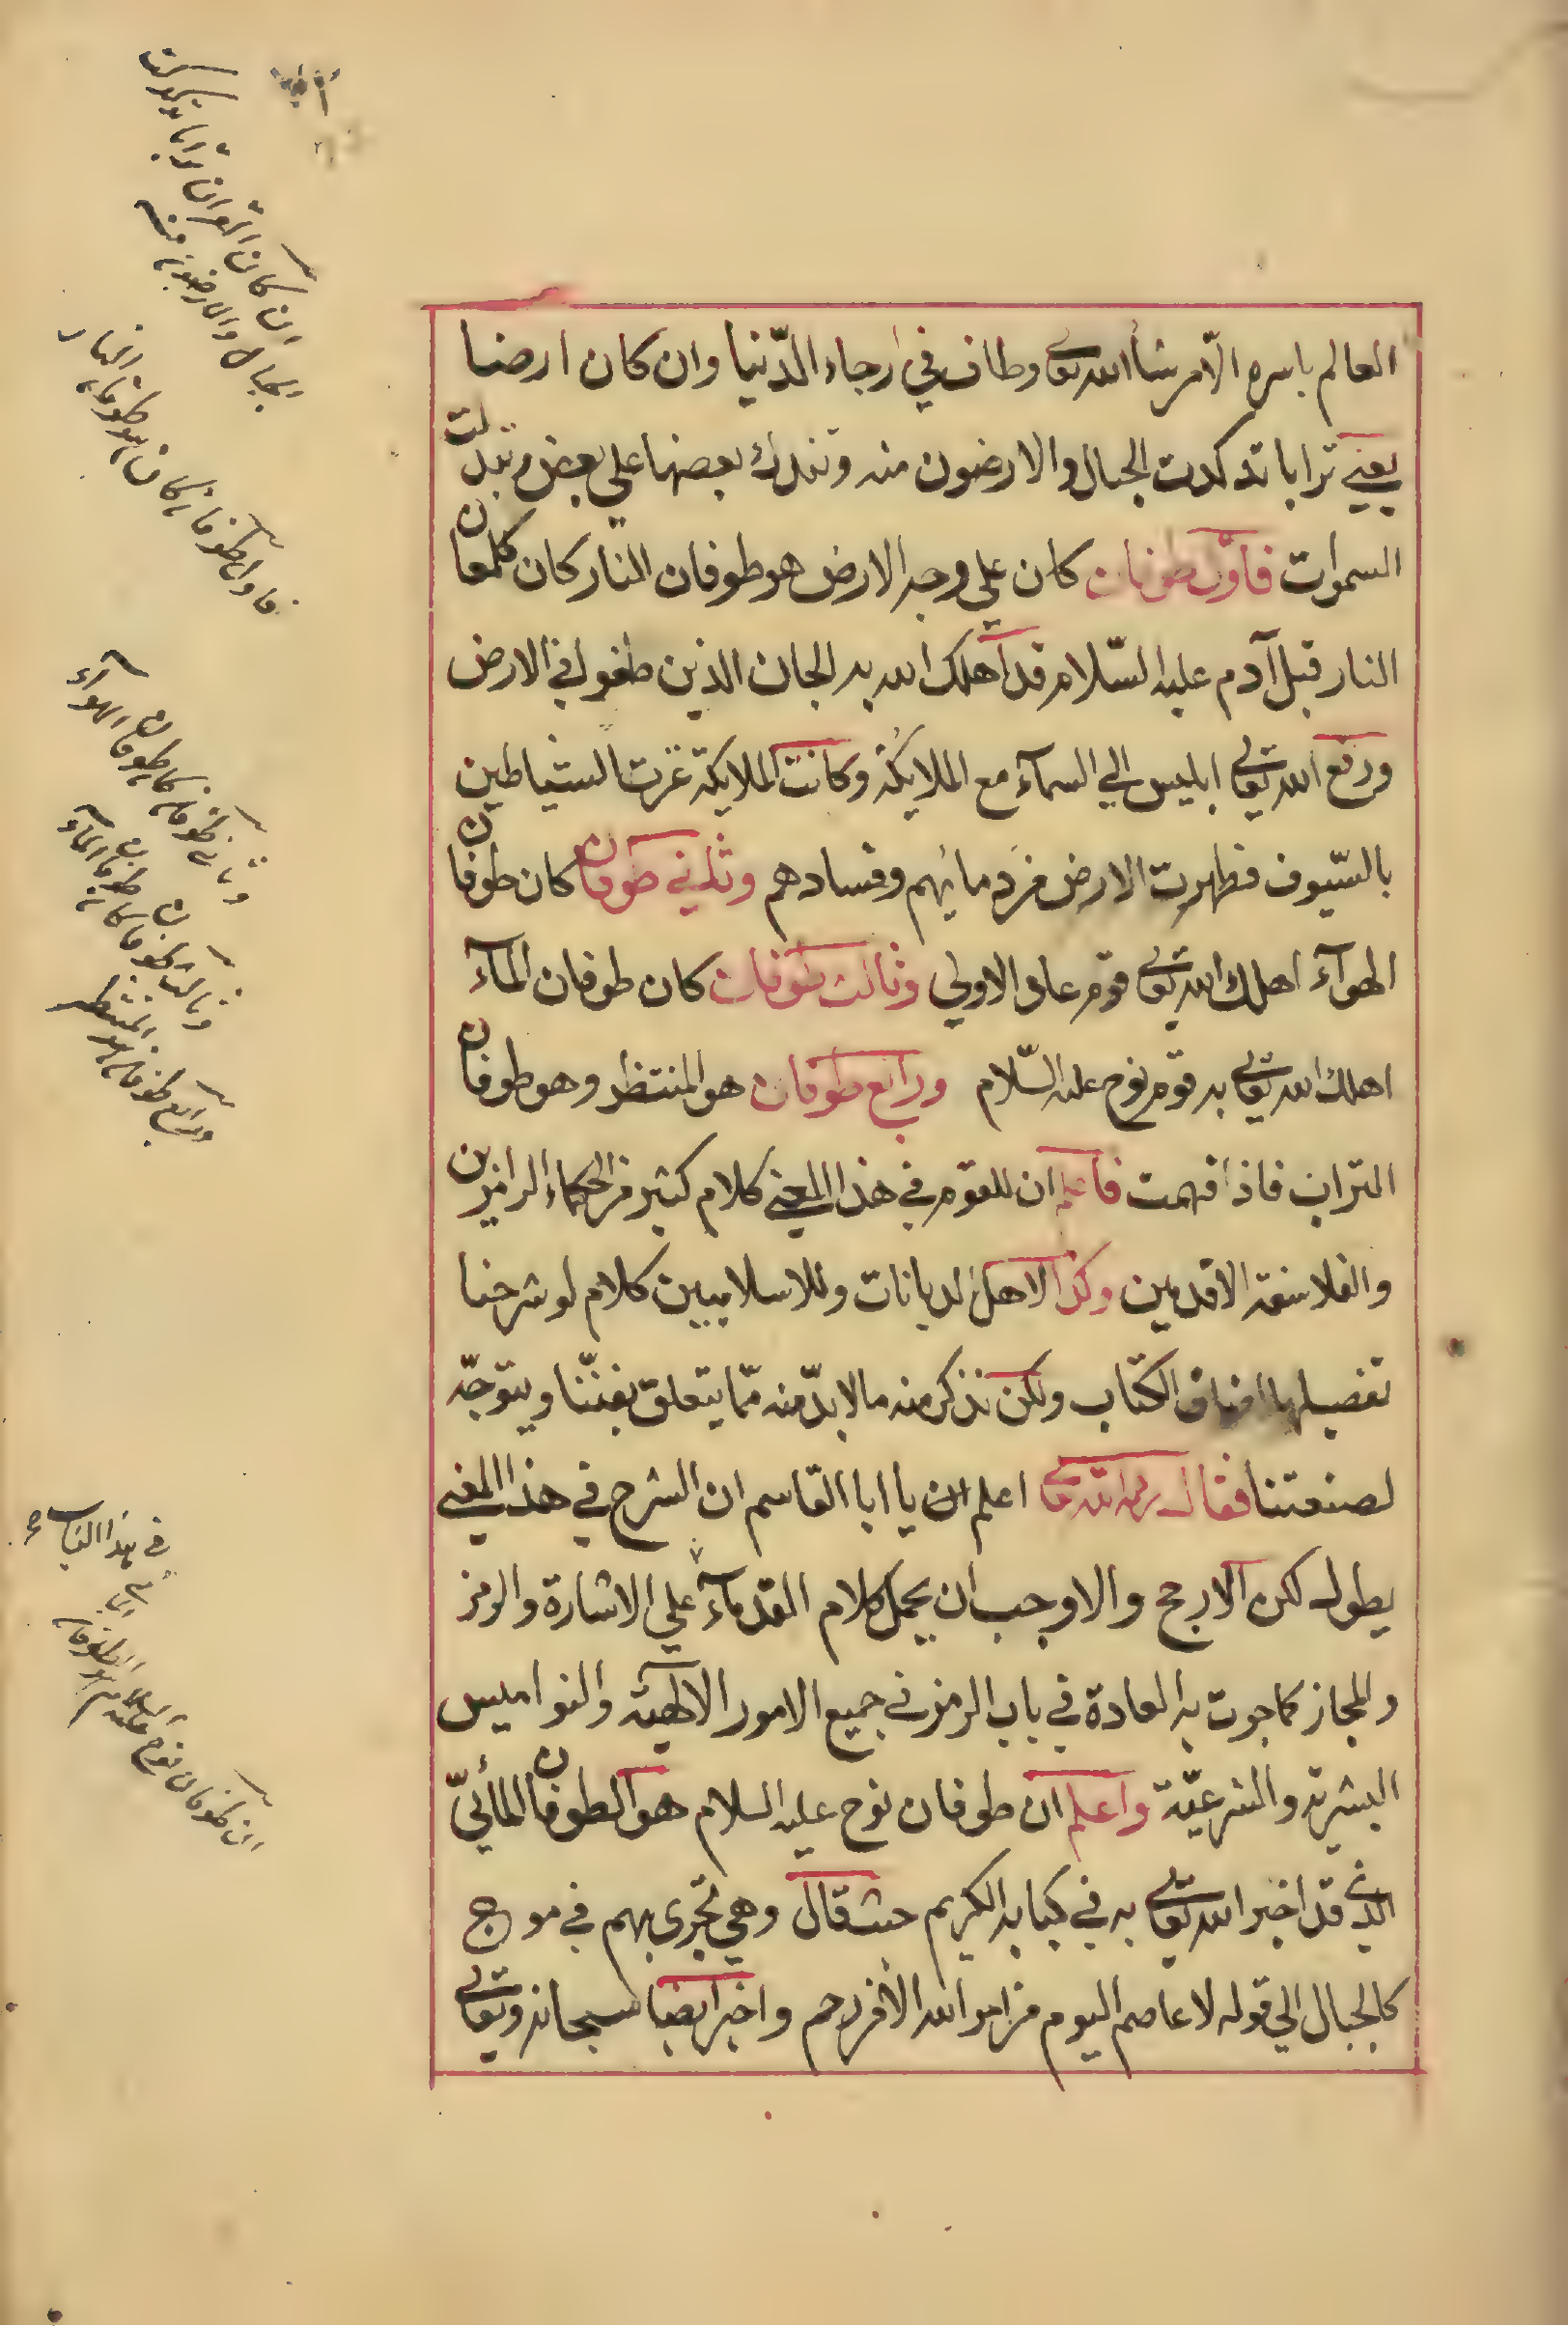 العالم باسره الا من شأ الله تعالى وطاف في ارجاء الدّنيا وان كان ارضا
يعني ترابا تدكدكت الجبال والارضون منه وتندك بعضها على بعض وتبدلت
السموات فاوّل طوفان كان على وجه الارض هو طوفان النار كان
النار قبل آدم عليه السّلام قد اهلك الله به الجان الذين طغوا في الارض
ورفع الله تعالى ابليس الي السمآء مع الملايكة وكانت الملايكة غزت الشياطين
بالسّيوف فطهرت الارض من دمائهم وفسادهم وثاني طوفان كان طوفان
الهوآء اهلك الله تعالى قوم عاد الاولي وثالث طوفان كان طوفان المآء
اهلك الله تعالى به قوم نوح عليه السّلام ورابع طوفان هو المنتظر وهو طوفان
التراب فاذا فهمت فاعلم ان للقوم في هذا المعني كلام كثير من الحكماء الرامزين
والفلاسفة الاقدمين وكذا لاهل الديانات وللاسلاميين كلام لو شرحنا
تفصيلها لضاق الكتاب ولكن نذكر منه ما لا بدّ منه ممّا يتعلق بفنّنا ويتوجّه
لصنعتنا فقال رحمه الله تعالى اعلم ان يا ابا القاسم ان الشرح في هذا المعني
يطول لكن الارجح والاوجب ان يحمل كلام القدمآء علي الاشارة والرمز
والمجاز كما جرت به العادة في باب الرمز في جميع الامور الالٓهية والنواميس
البشرية والشرعيّة واعلم ان طوفان نوح عليه السلام هو الطوفان المأئيّ
الذي قد اخبر الله تعالى به في كتابه الكريم حيث قال وهي تجري بهم في موج
كالجبال الي قوله لا عاصم اليوم من امر الله الا من رحم واخبر ايضا سبحانه وتعالى
ان كان القران ترابا تدكدكت
الجبال والارضون منه
فاول طوفان كان هو طوفان النار
وثاني طوفان كان طوفان الهوآء
وثالث طوفان كان طوفان المآء
ورابع طوفان هو المنتظر
في هذا الباب
ان طوفان نوح عليه السلام هو الطوفان